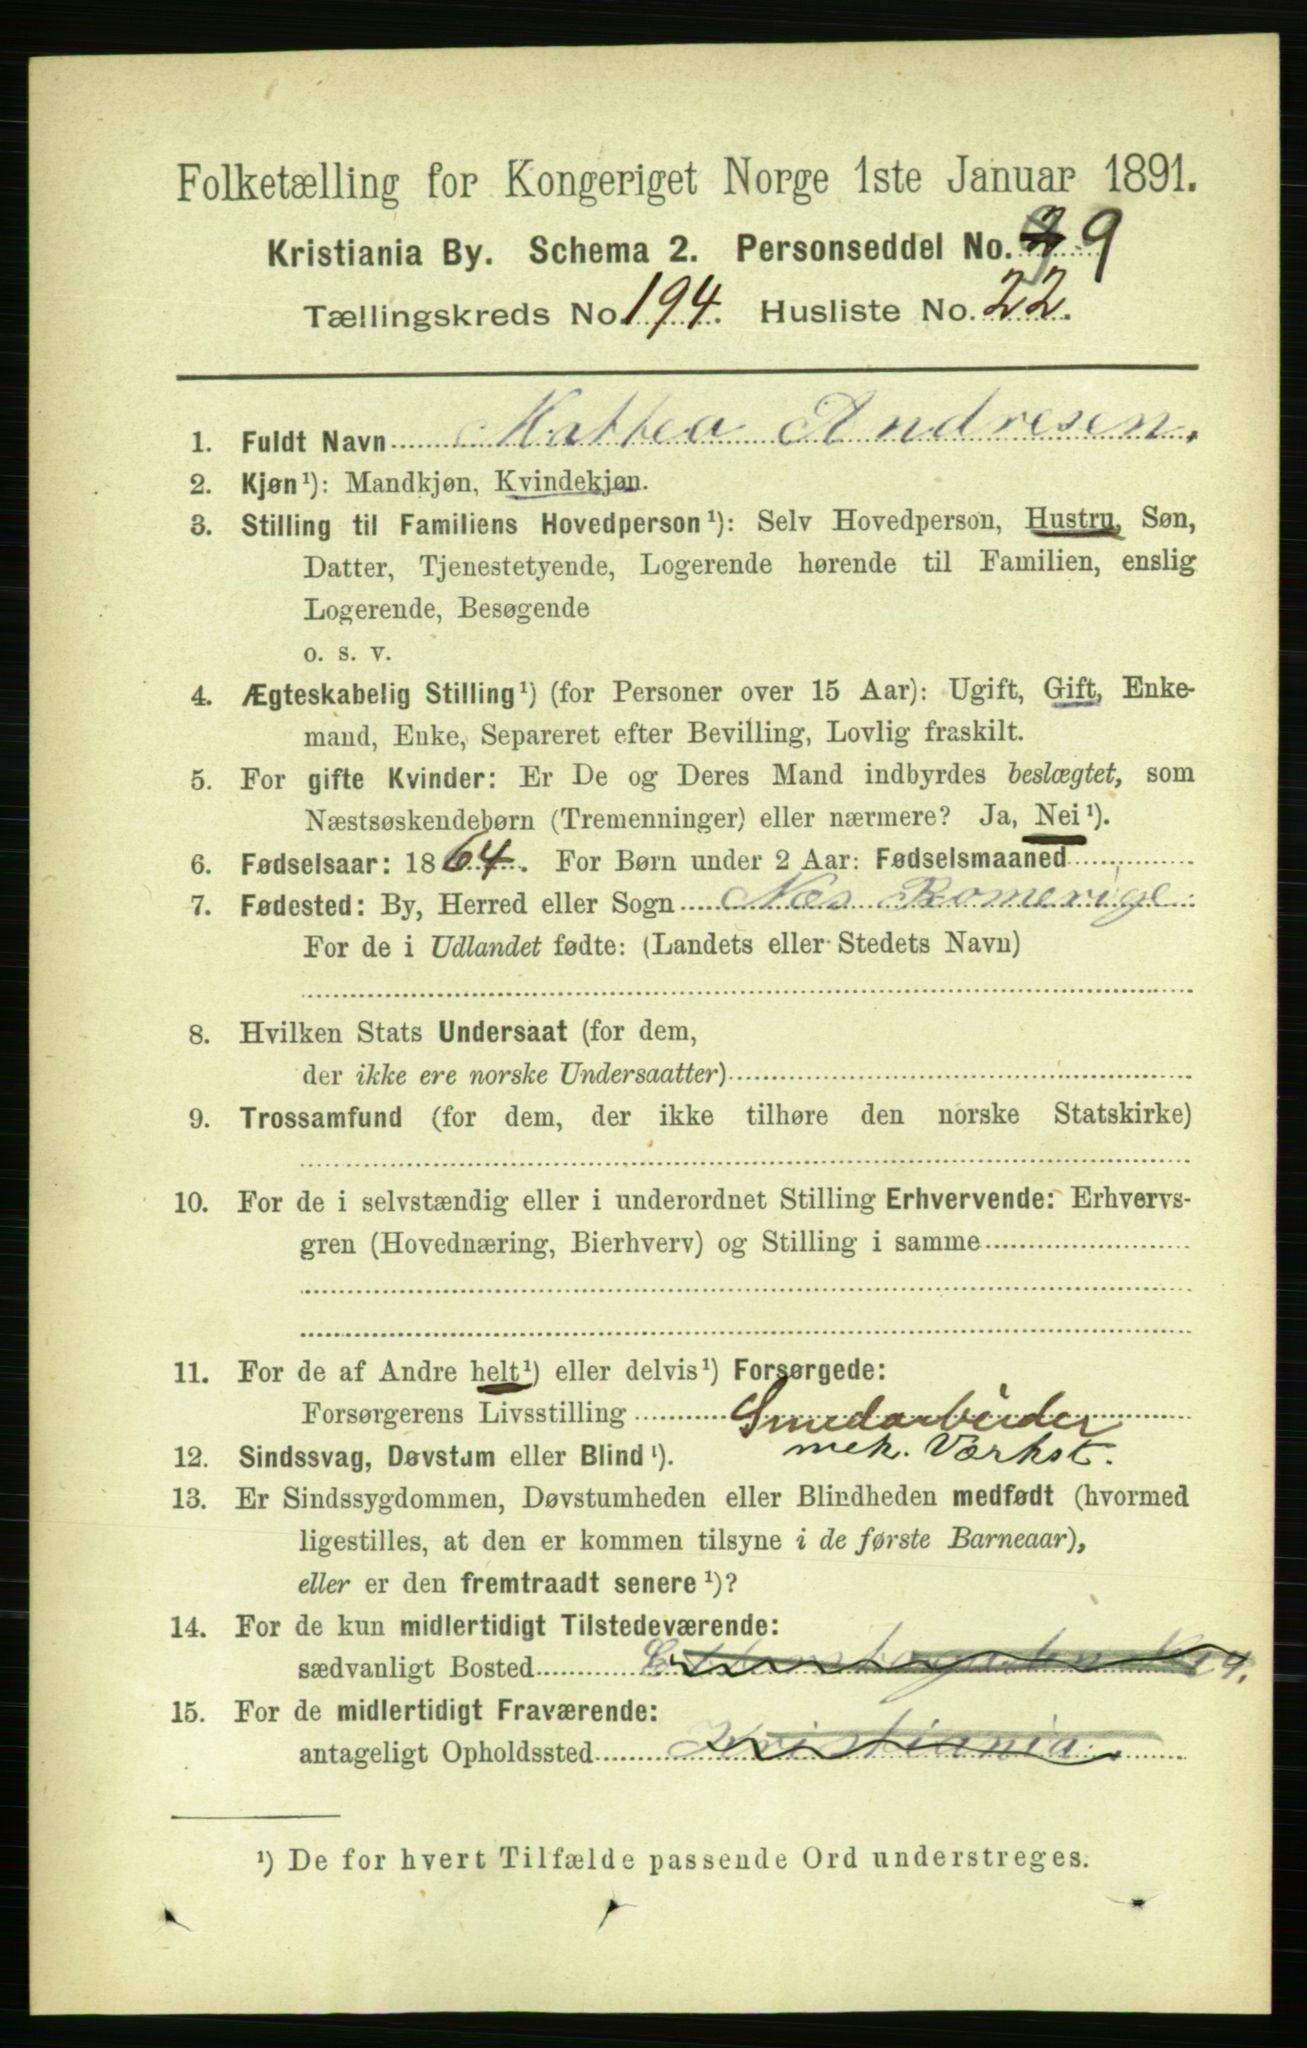 Folketælling for Kongeriget Norge 1ste Januar 1891.
Kristiania By. Schema 2. Personseddel No. 9
Tællingskreds No. 194. Husliste No. 22.
1. Fuldt Navn Mathea Andresen.
2. Kjøn¹): Mandkjøn, Kvindekjøn.
3. Stilling til Familiens Hovedperson¹): Selv Hovedperson, Hustru, Søn,
Datter, Tjenestetyende, Logerende hørende til Familien, enslig
Logerende, Besøgende
o. s. v.
4. Ægteskabelig Stilling¹) (for Personer over 15 Aar): Ugift, Gift, Enke-
mand, Enke, Separeret efter Bevilling, Lovlig fraskilt.
5. For gifte Kvinder: Er De og Deres Mand indbyrdes beslægtet, som
Næstsøskendebørn (Tremenninger) eller nærmere? Ja, Nei¹).
6. Fødselsaar: 1864. For Børn under 2 Aar: Fødselsmaaned
7. Fødested: By, Herred eller Sogn Næs Romerige
For de i Udlandet fødte: (Landets eller Stedets Navn)
8. Hvilken Stats Undersaat (for dem,
der ikke ere norske Undersaatter)
9. Trossamfund (for dem, der ikke tilhøre den norske Statskirke)
10. For de i selvstændig eller i underordnet Stilling Erhvervende: Erhvervs-
gren (Hovednæring, Bierhverv) og Stilling i samme
11. For de af Andre helt¹) eller delvis¹) Forsørgede:
Forsørgerens Livsstilling Smedarbeider
mek. Værkst.
12. Sindssvag, Døvstum eller Blind¹).
13. Er Sindssygdommen, Døvstumheden eller Blindheden medfødt (hvormed
ligestilles, at den er kommen tilsyne i de første Barneaar),
eller er den fremtraadt senere¹)?
14. For de kun midlertidigt Tilstedeværende:
sædvanligt Bosted
15. For de midlertidigt Fraværende:
antageligt Opholdssted Kristiania.
¹) De for hvert Tilfælde passende Ord understreges.